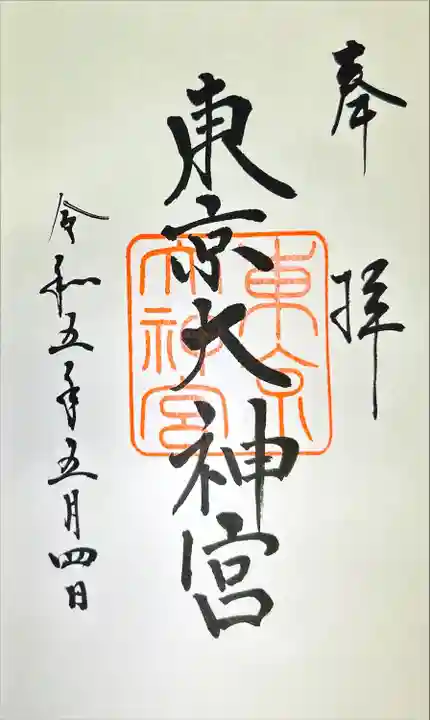 奉拝
東京大神宮
東京
大神宮
令和五年五月四日